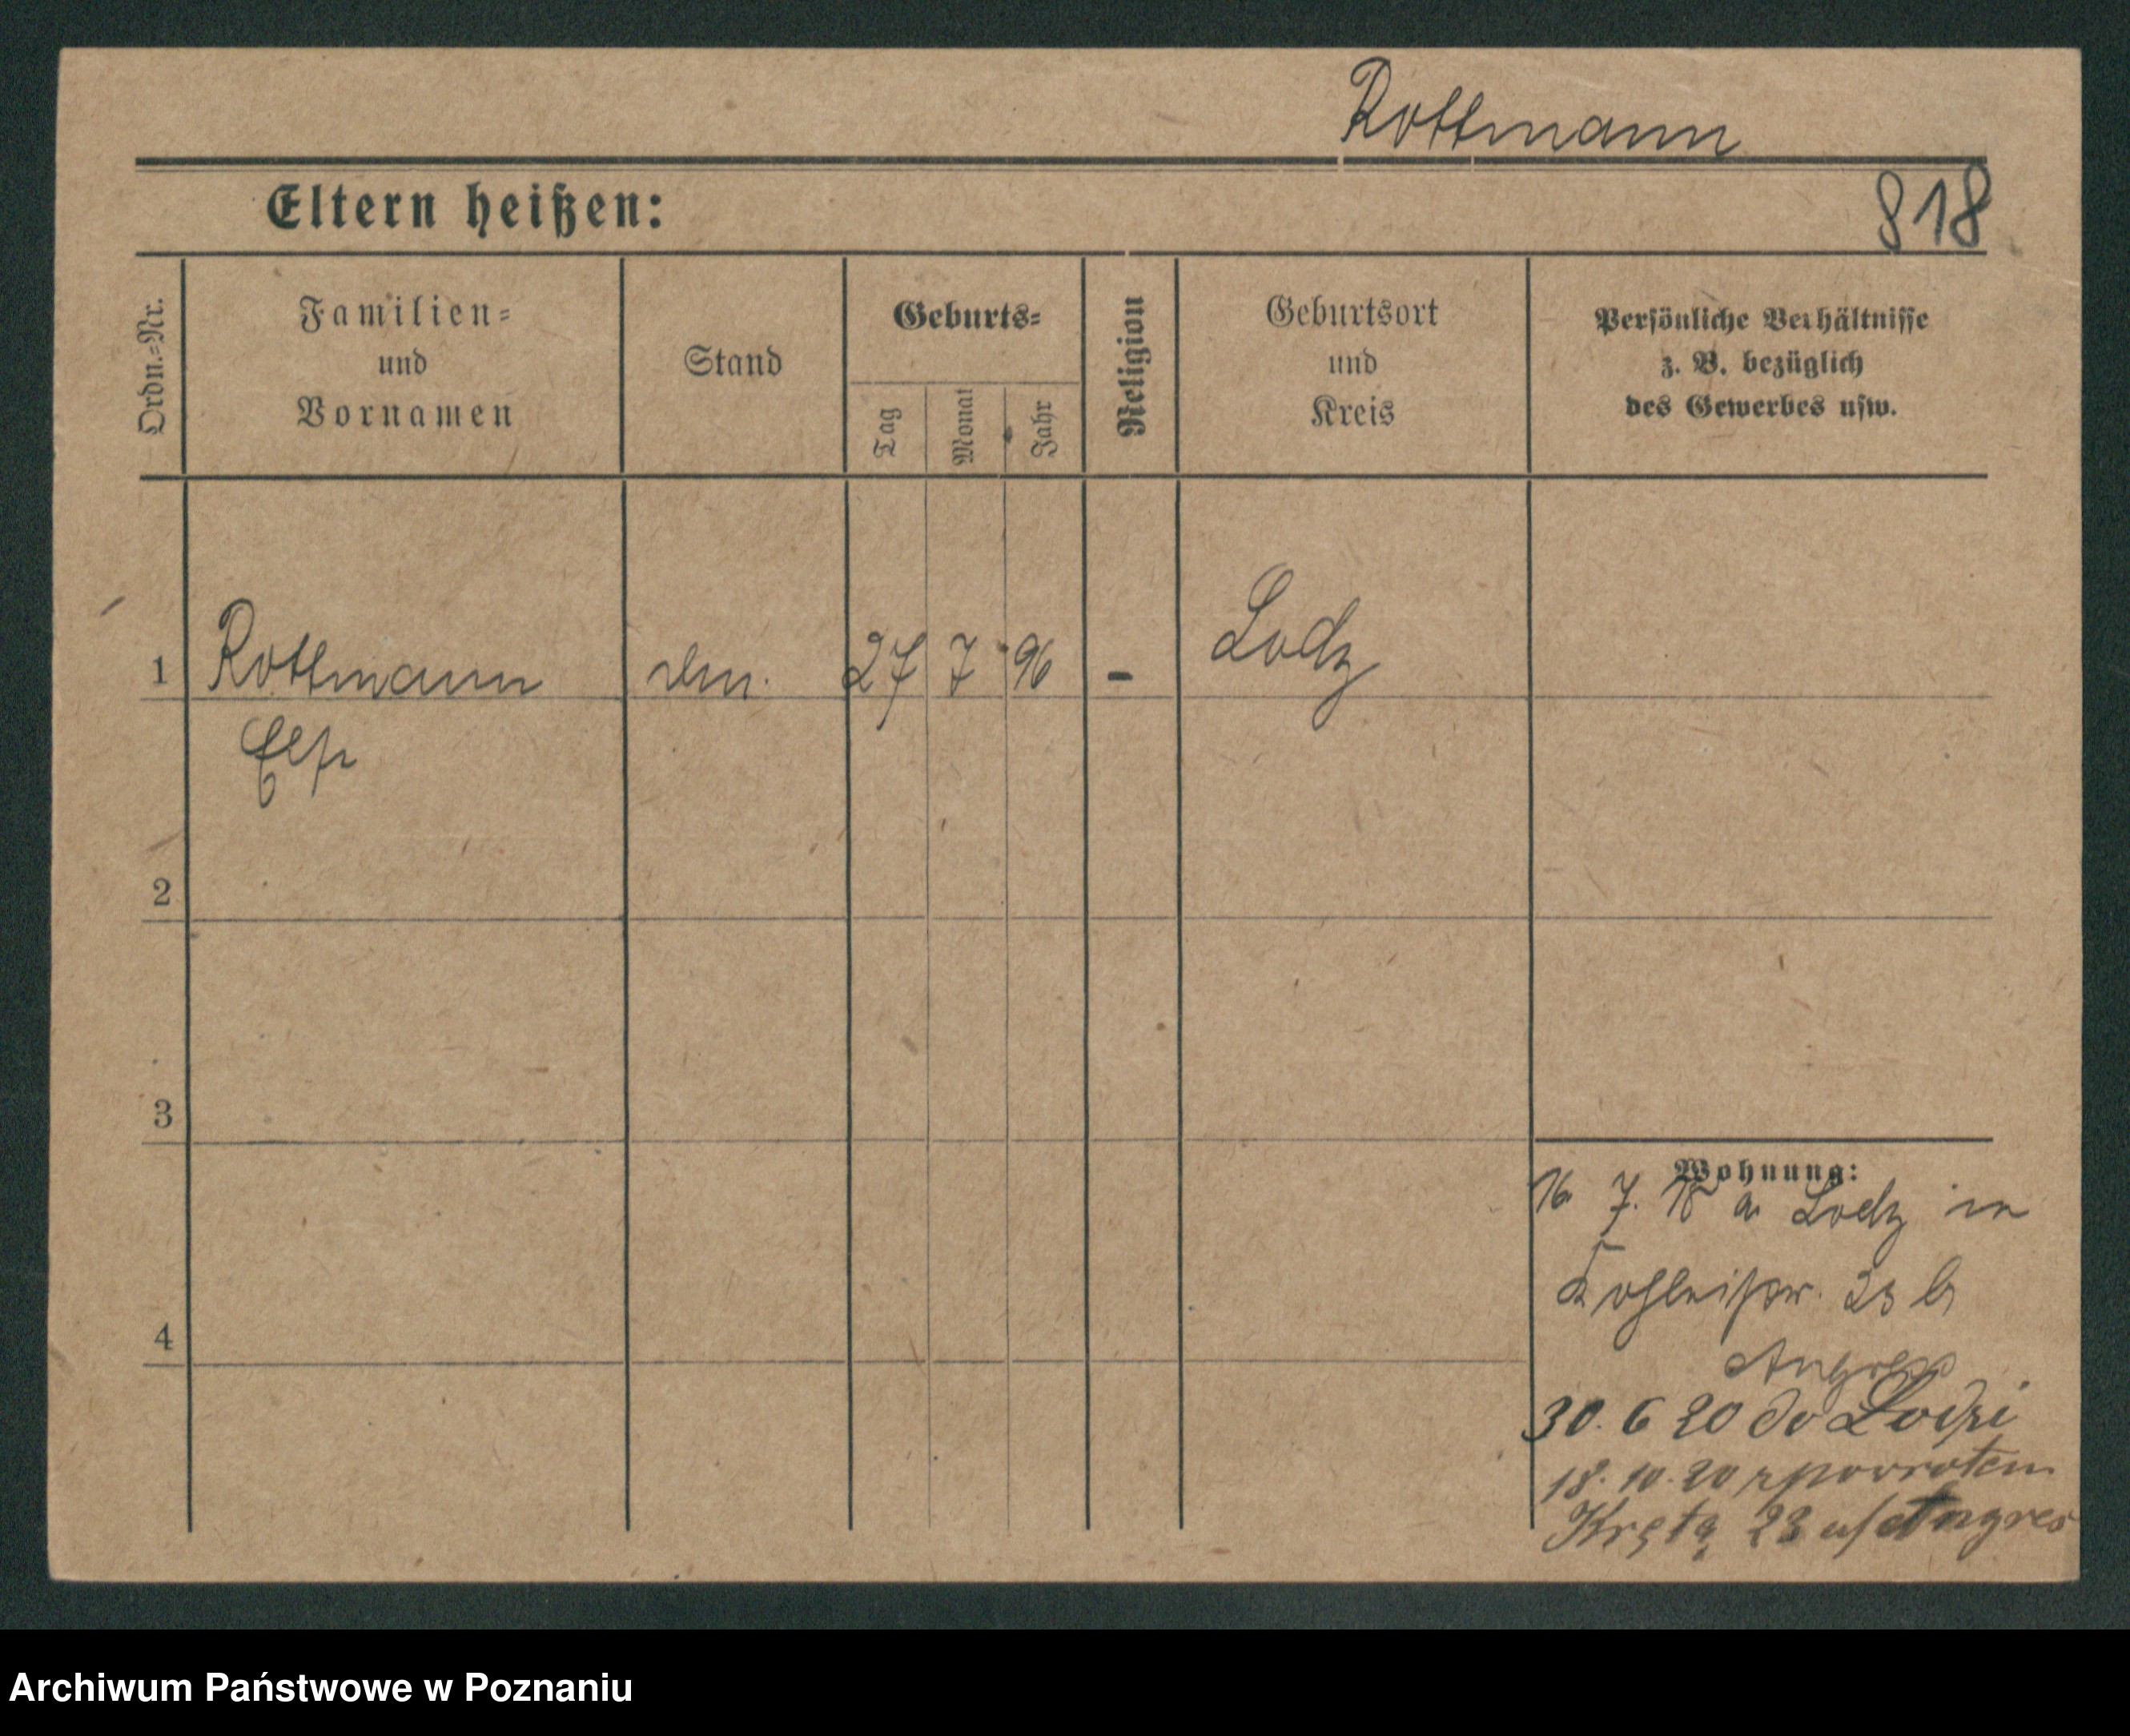 Rottmann
Eltern heißen:
818
Ordn.=Nr.
Familien=
und
Vornamen
Stand
Geburts=
Tag
Monat
Jahr
Religion
Geburtsort
und
Kreis
Persönliche Verhältnisse
z. B. bezüglich
des Gewerbes usw.
1 Rottmann 27 7 96 - Lodz
2
3
4
Wohnung:
16 7. 18 a Lodz in
23 b
Angress
30. 6 20 do Lodzi
18. 10. 20 z powrotem
Kręta 23 u/ Angres
Archiwum Państwowe w Poznaniu